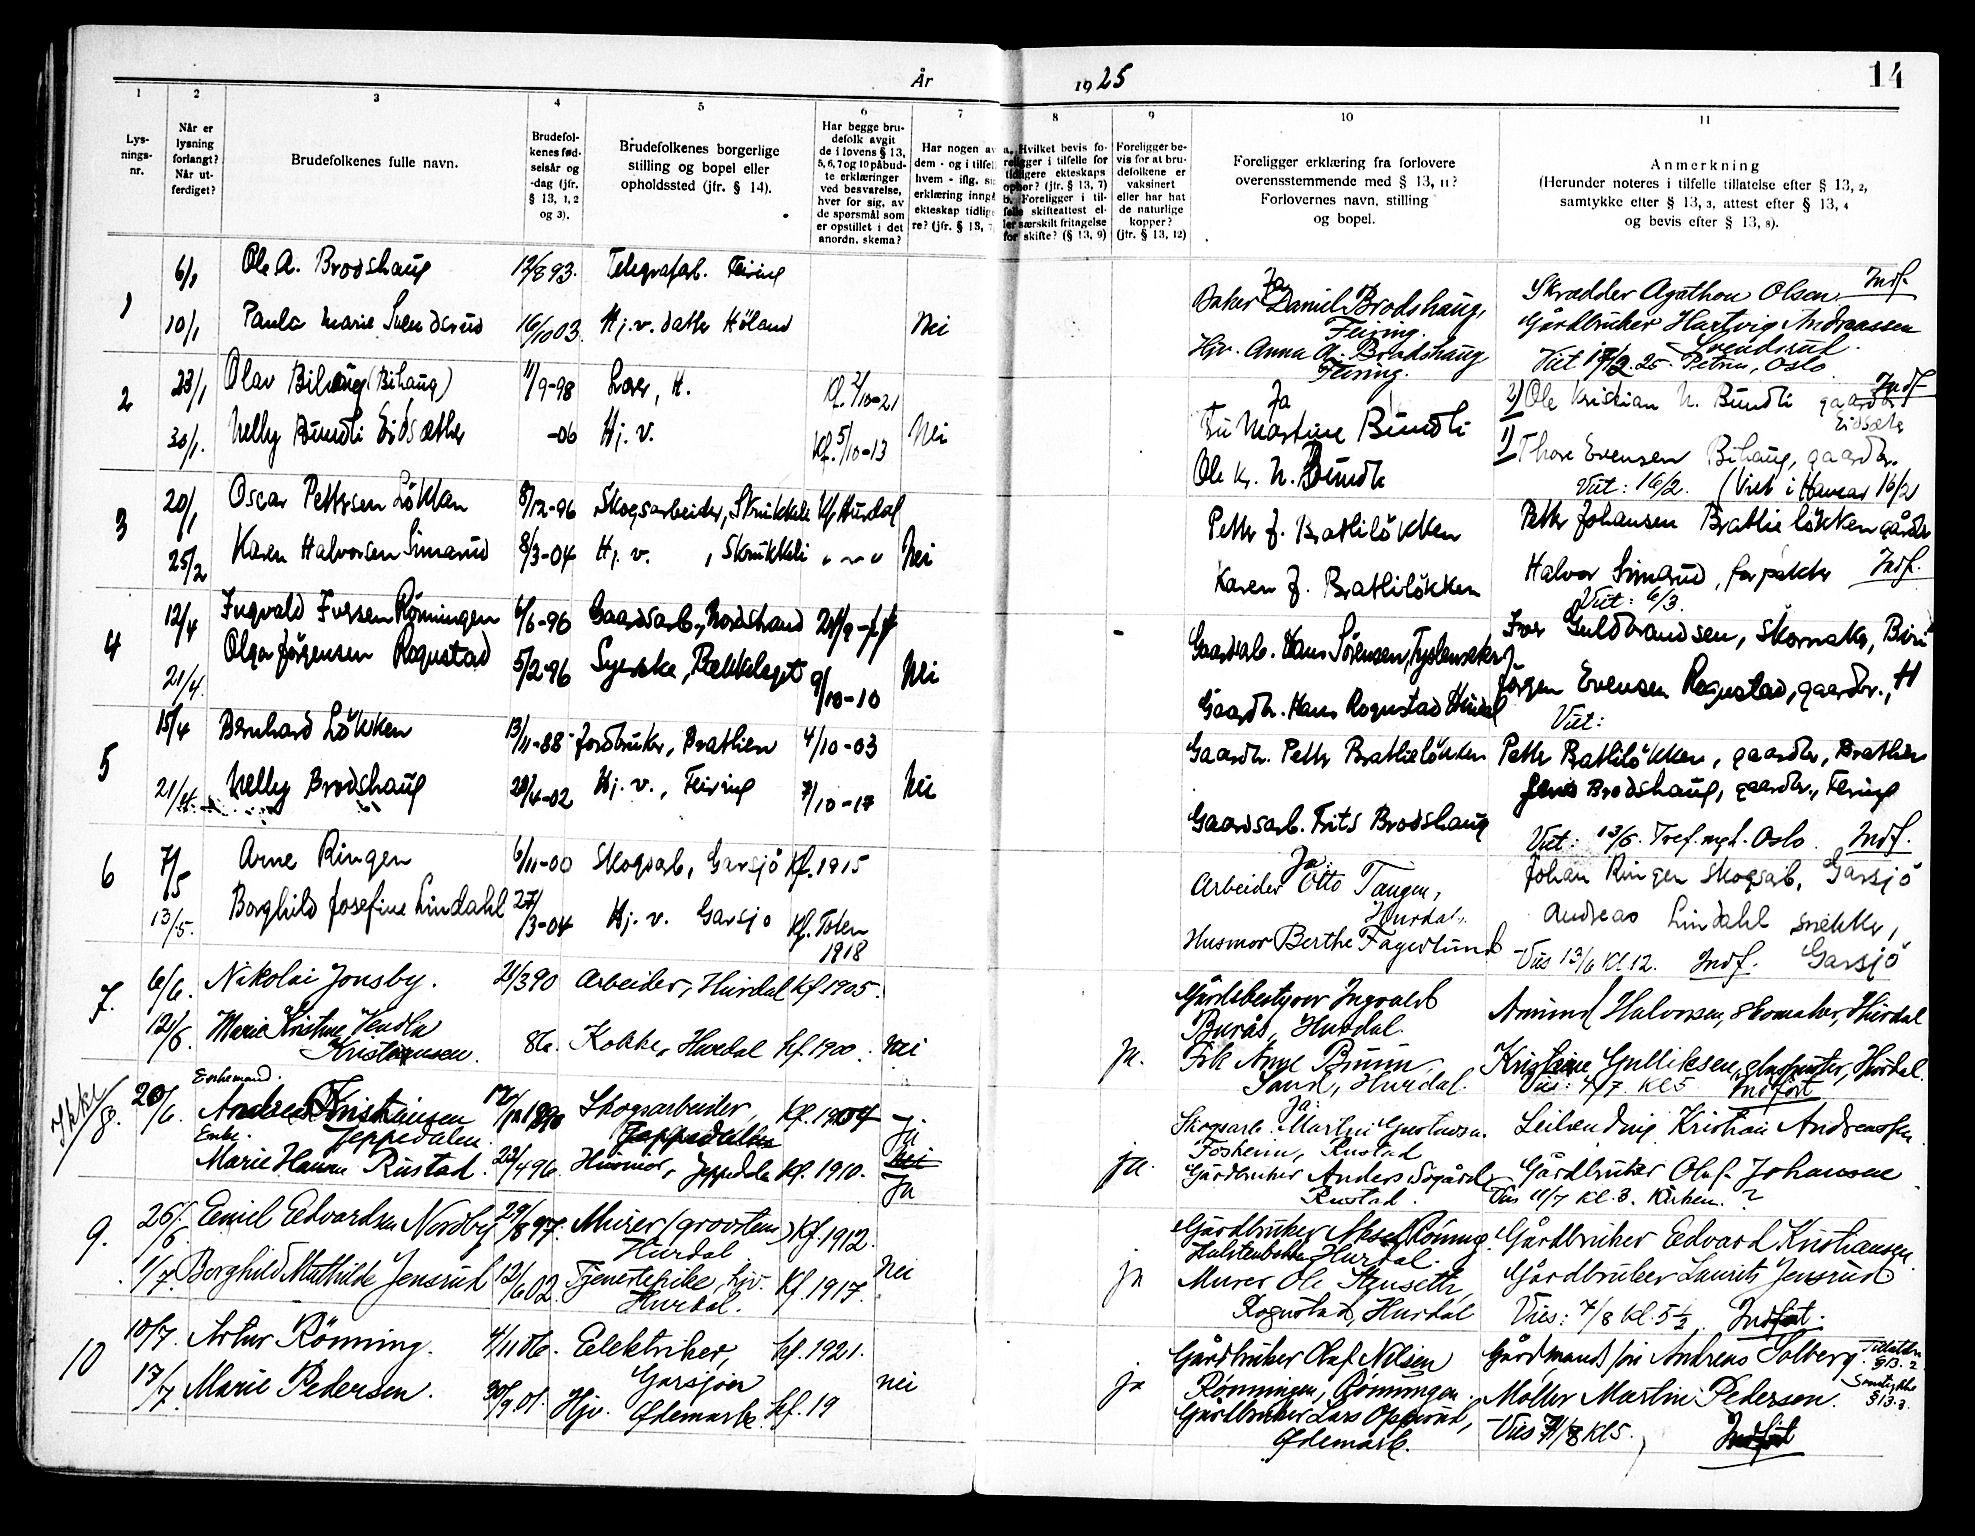 År 1925
14
1 2 3 4 5 6 7 8 9 10 11
Lys-
nings-
nr.
Når er
lysning
forlangt?
Når ut-
ferdiget?
Brudefolkenes fulle navn.
Brudefol-
kenes fød-
selsår og
-dag (jfr.
§ 13, 1, 2
og 3).
Brudefolkenes borgerlige
stilling og bopel eller
opholdssted (jfr. § 14).
Har begge bru-
defolk avgit
de i lovens § 13,
5, 6, 7 og 10 påbud-
te erklæringer
ved besvarelse,
hver for sig, av
de spørsmål som
er opstillet i det
anordn. skema?
Har nogen av
dem - og i tilfel
hvem - iflg. sig
erklæring inngå
ekteskap tidlige
re? (jfr. § 13, 7
a. Hvilket bevis fo-
religger i tilfelle for
tidligere ekteskaps
ophør? (jfr. § 13, 7)
b. Foreligger i til-
felle skifteattest el-
ler særskilt fritagelse
for skifte? (§ 13, 9)
Foreligger be-
vis for at bru-
defolkene er
vaksinert
eller har hat
de naturlige
kopper?
(jfr. § 13, 12)
Foreligger erklæring fra forlovere
overensstemmende med § 13, 11?
Forlovernes navn, stilling
og bopel.
Anmerkning
(Herunder noteres i tilfelle tillatelse efter § 13, 2,
samtykke efter § 13, 3, attest efter § 13, 4
og bevis efter § 13, 8).
1 6/1 Ole A. Brodshaug 12/8 93. Telegrafarb. Feiring
Ja
Baker Daniel Brodshaug,
Feiring.
Skrædder Agathon Olsen Indf.
10/1 Paula Marie Svendsrud 16/10 03. Hj.v. datter Höland Nei
Hjv. Anna A. Brodshaug
Feiring.
Gårdbruker Hartvig Andreassen
Svendsrud.
Viet 17/2 25 - Petrus, Oslo
2 23/1 Olav Bihaug (Bihaug) 11/9-98 H. Kf. 2/10-21
Ja
Fru Martine Bundli
2) Ole Kristian N. Bundli gaardbr. Indf
Eidsæter
30/1. Nelly Bundli Eidsæther -06 Hj. v. Kf. 5/10-13 Nei
Ole Kr. N. Bundli
1) Thore Evensen Bihaug, gaardbr.
Viet: 16/2. (Viet i Havnar 16/2
3 20/1 Oscar Pettersen Lökken 8/12-96 Skogsarbeider, Skrukkeli Kf Hurdal
Petter J. Brathlilökken
Petter Johansen Brathelökken gårdbr
25/2 Karen Halvorsen Simarud 8/3-04 Hj. v. , Skrukkeli " ~ " Nei
Karen J. Brathlilökken
Halvor Simarud, forpakter Indf.
Viet: 6/3.
4 12/4 Ingvald Iversen Rönningen 6/6-96 Gaardsarb., Nordstrand
Gaardsarb. Hans Sörensen,
Iver Guldbrandsen, Skomaker, Biri
21/4. Olga Jörgensen Rognstad 5/2-96 Syerske, Bekkelaget 9/10-10 Nei
Gaardbr. Hans Rognstad Hurdal
Jörgen Evensen Rognstad, gaardbr., H
Viet:
5 15/4 Bernhard Lökken 13/11-88 Jordbruker, Brathlien 4/10-03
Gaardbr. Petter Brathlielökken
Petter Bathlilökken, gaardbr, Brathlien
21/4. Nelly Brodshaug 28/4-02 Hj. v., Feiring 7/10-17 Nei
Gaardsarb. Frits Brodshaug
Jens Brodshaug, gaardbr., Feiring
Viet: 13/5. Tref. mgh. Oslo. Indf.
6 7/5 Arne Ringen 6/11-00 Skogsarb, Garsjö Kf. 1915
Ja:
Arbeider Otto Tangen,
Hurdal.
Johan Ringen Skogsarb, Garsjö
13/5. Borghild Josefine Lindahl 27/3-04 Hj. v. Garsjö Kf. Toten
1918
Husmor Berthe Fagerlund
Andreas Lindahl snekker,
Garsjö
Vies 13/6 Kl 12. Indf.
7. 6/6. Nikolai Jonsby. 21/3 90 Arbeider, Hurdal Kf 1905.
Gårdsbestyrer Ingvald
Burås, Hurdal.
Amund Halvorsen, Skomaker, Hurdal
12/6. Marie Kristine Vendla
Kristiansen. 86. Kokke, Hurdal Kf. 1900. nei
ja. Frk Anne Brunn,
Sand, Hurdal.
Kristine Gulliksen, Hurdal.
Vies: 4/7 Kl 5 Indført
Ikke
8. 20/6. Enkemand.
Andreas Kristiansen
Jeppedalen. 1890 Skogsarbeider,
Jeppedalen Kf. 1904 Ja
Ja:
Skogsarb. Martin Gustavsen.
Fosheim, Rustad
Leilending Kristian Andreassen
Enke.
Marie Hansen Rustad. 23/4 96. Husmor, Jeppedalen Kf. 1910. nei
Ja
ja. Gårdbruker Anders Sögård
Rustad.
Gårdbruker Olaf Johansen
Vies 11/7 Kl. 3. Kirken. ?
9. 26/6 Emil Edvardsen Nordby 29/8 97. Murer (grovsten)
Hurdal Kf. 1912.
Gårdbruker Aksel Rönning.
Hurdal.
Gårdbruker Edvard Kristiansen
1/7. Borghild Mathilde Jensrud 12/6 02. Tjenestepike, hjv.
Hurdal. Kf. 1917. nei
ja Murer Ole Stenseth,
Rognstad, Hurdal
Gårdbruker Laurits Jensrud
Vies: 4/8 Kl. 5½ Indført.
10 10/7. Artur Rönning. 4/11 06. Elektriker,
Garsjøen Kf. 1921.
Gårdbruker Olaf Nilsen
Rønningen, Rønningen.
Gårdmand Andreas Solberg. Tillatelse
§ 13. 2
17/7. Marie Pedersen. 30/9 01. Hjv. Ødemark. Kf. 19 nei
ja Gårdbruker Lars Opperud,
Ødemark.
Møller Martin Pedersen. Samtykke
§ 13. 3.
Vies 7/8 Kl 5. Indført